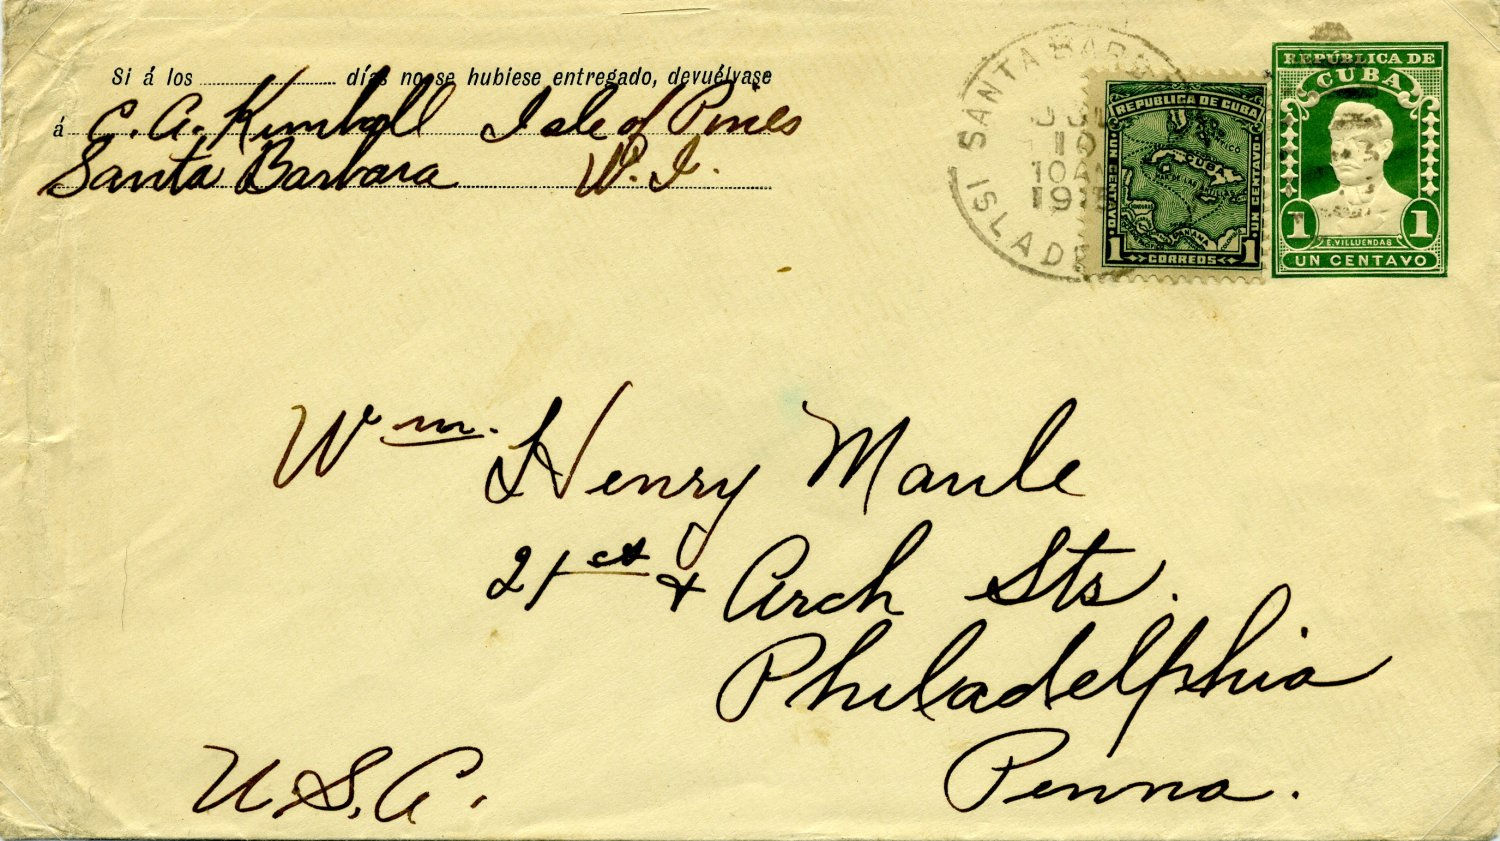 Si á los ............ días no se hubiese entregado, devuélvase
á C. A. Kimball Isle of Pines
Santa Barbara W. I.
SANTA BARB
10
10 AM
1915
ISLA DE
REPUBLICA DE CUBA
MEXICO
CUBA
PANAMA
UN CENTAVO
UN CENTAVO
1 CORREOS 1
REPÚBLICA DE
CUBA
1 1
E. VILLUENDAS
UN CENTAVO
Wm. Henry Maule
21st & Arch Sts.
Philadelphia
Penna.
U.S.A.